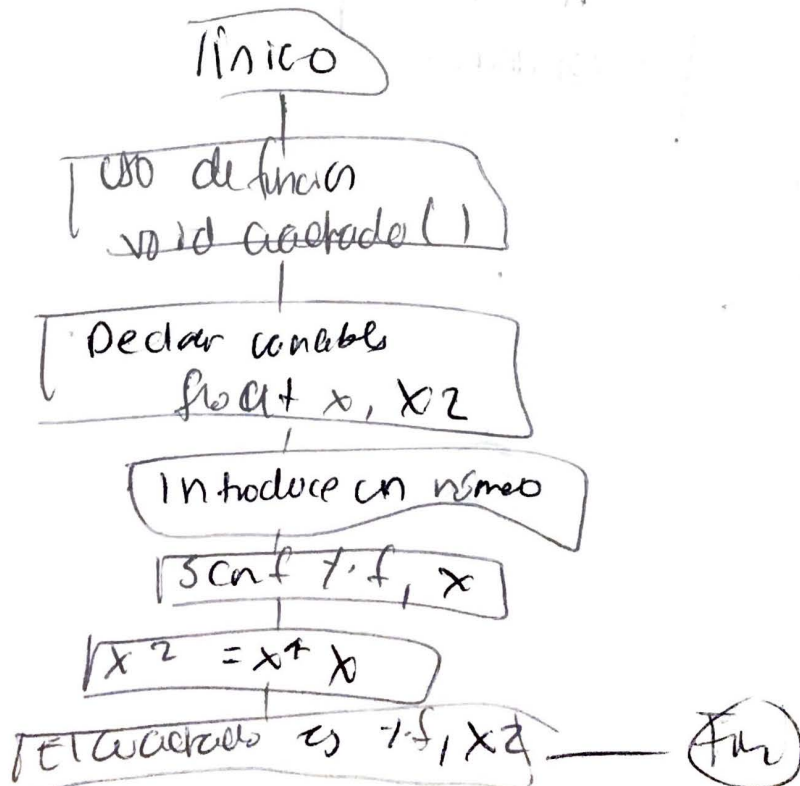 Inico
uso de funcion
void cuadrado ( )
Declar variables
float x, x2
Introduce un número
scnf %f, x
x2 = x* x
El cuadrado es %f, x2
Fin